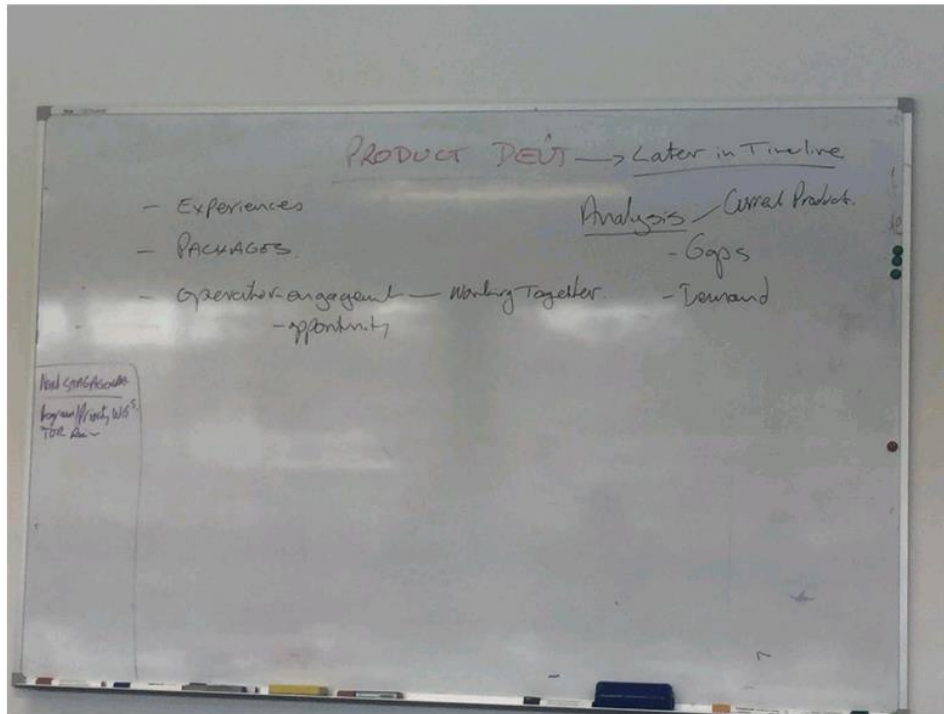 PRODUCT DEV'T → Later in Timeline
- Experiences
- PACKAGES.
- Operator engagement — Working Together.
- opportunity
Analysis / Current Products.
- Gaps
- Demand
Priority WG's
TOR